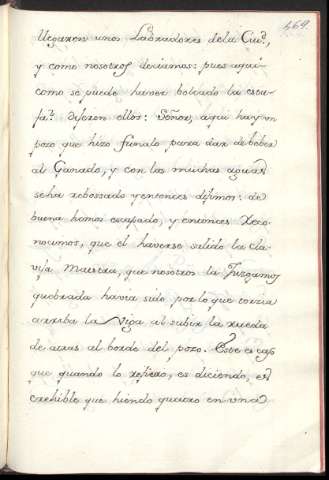 469.
llegaron unos Labradores de la Ciud.,
y como nosotros deciamos: pues aqui
como se puede haver bolcado la
dijeron ellos: Señores, aqui hay un
pozo que hizo fulano, para dar de beber
al Ganado, y con las muchas aguas
seha rebossado y entonces dijimos: de
buena hemos escapado, y entonces Reco-
nocimos, que el haverse salido la cla-
vija Maestra, que nosotros la Juzgamos
quebrada havia sido, por lo que corria
arriba la Viga al subir la rueda
de atras al borde del pozo. Este es caso
que quando lo refiero, es diciendo, es
crehible que hiendo quatro en una